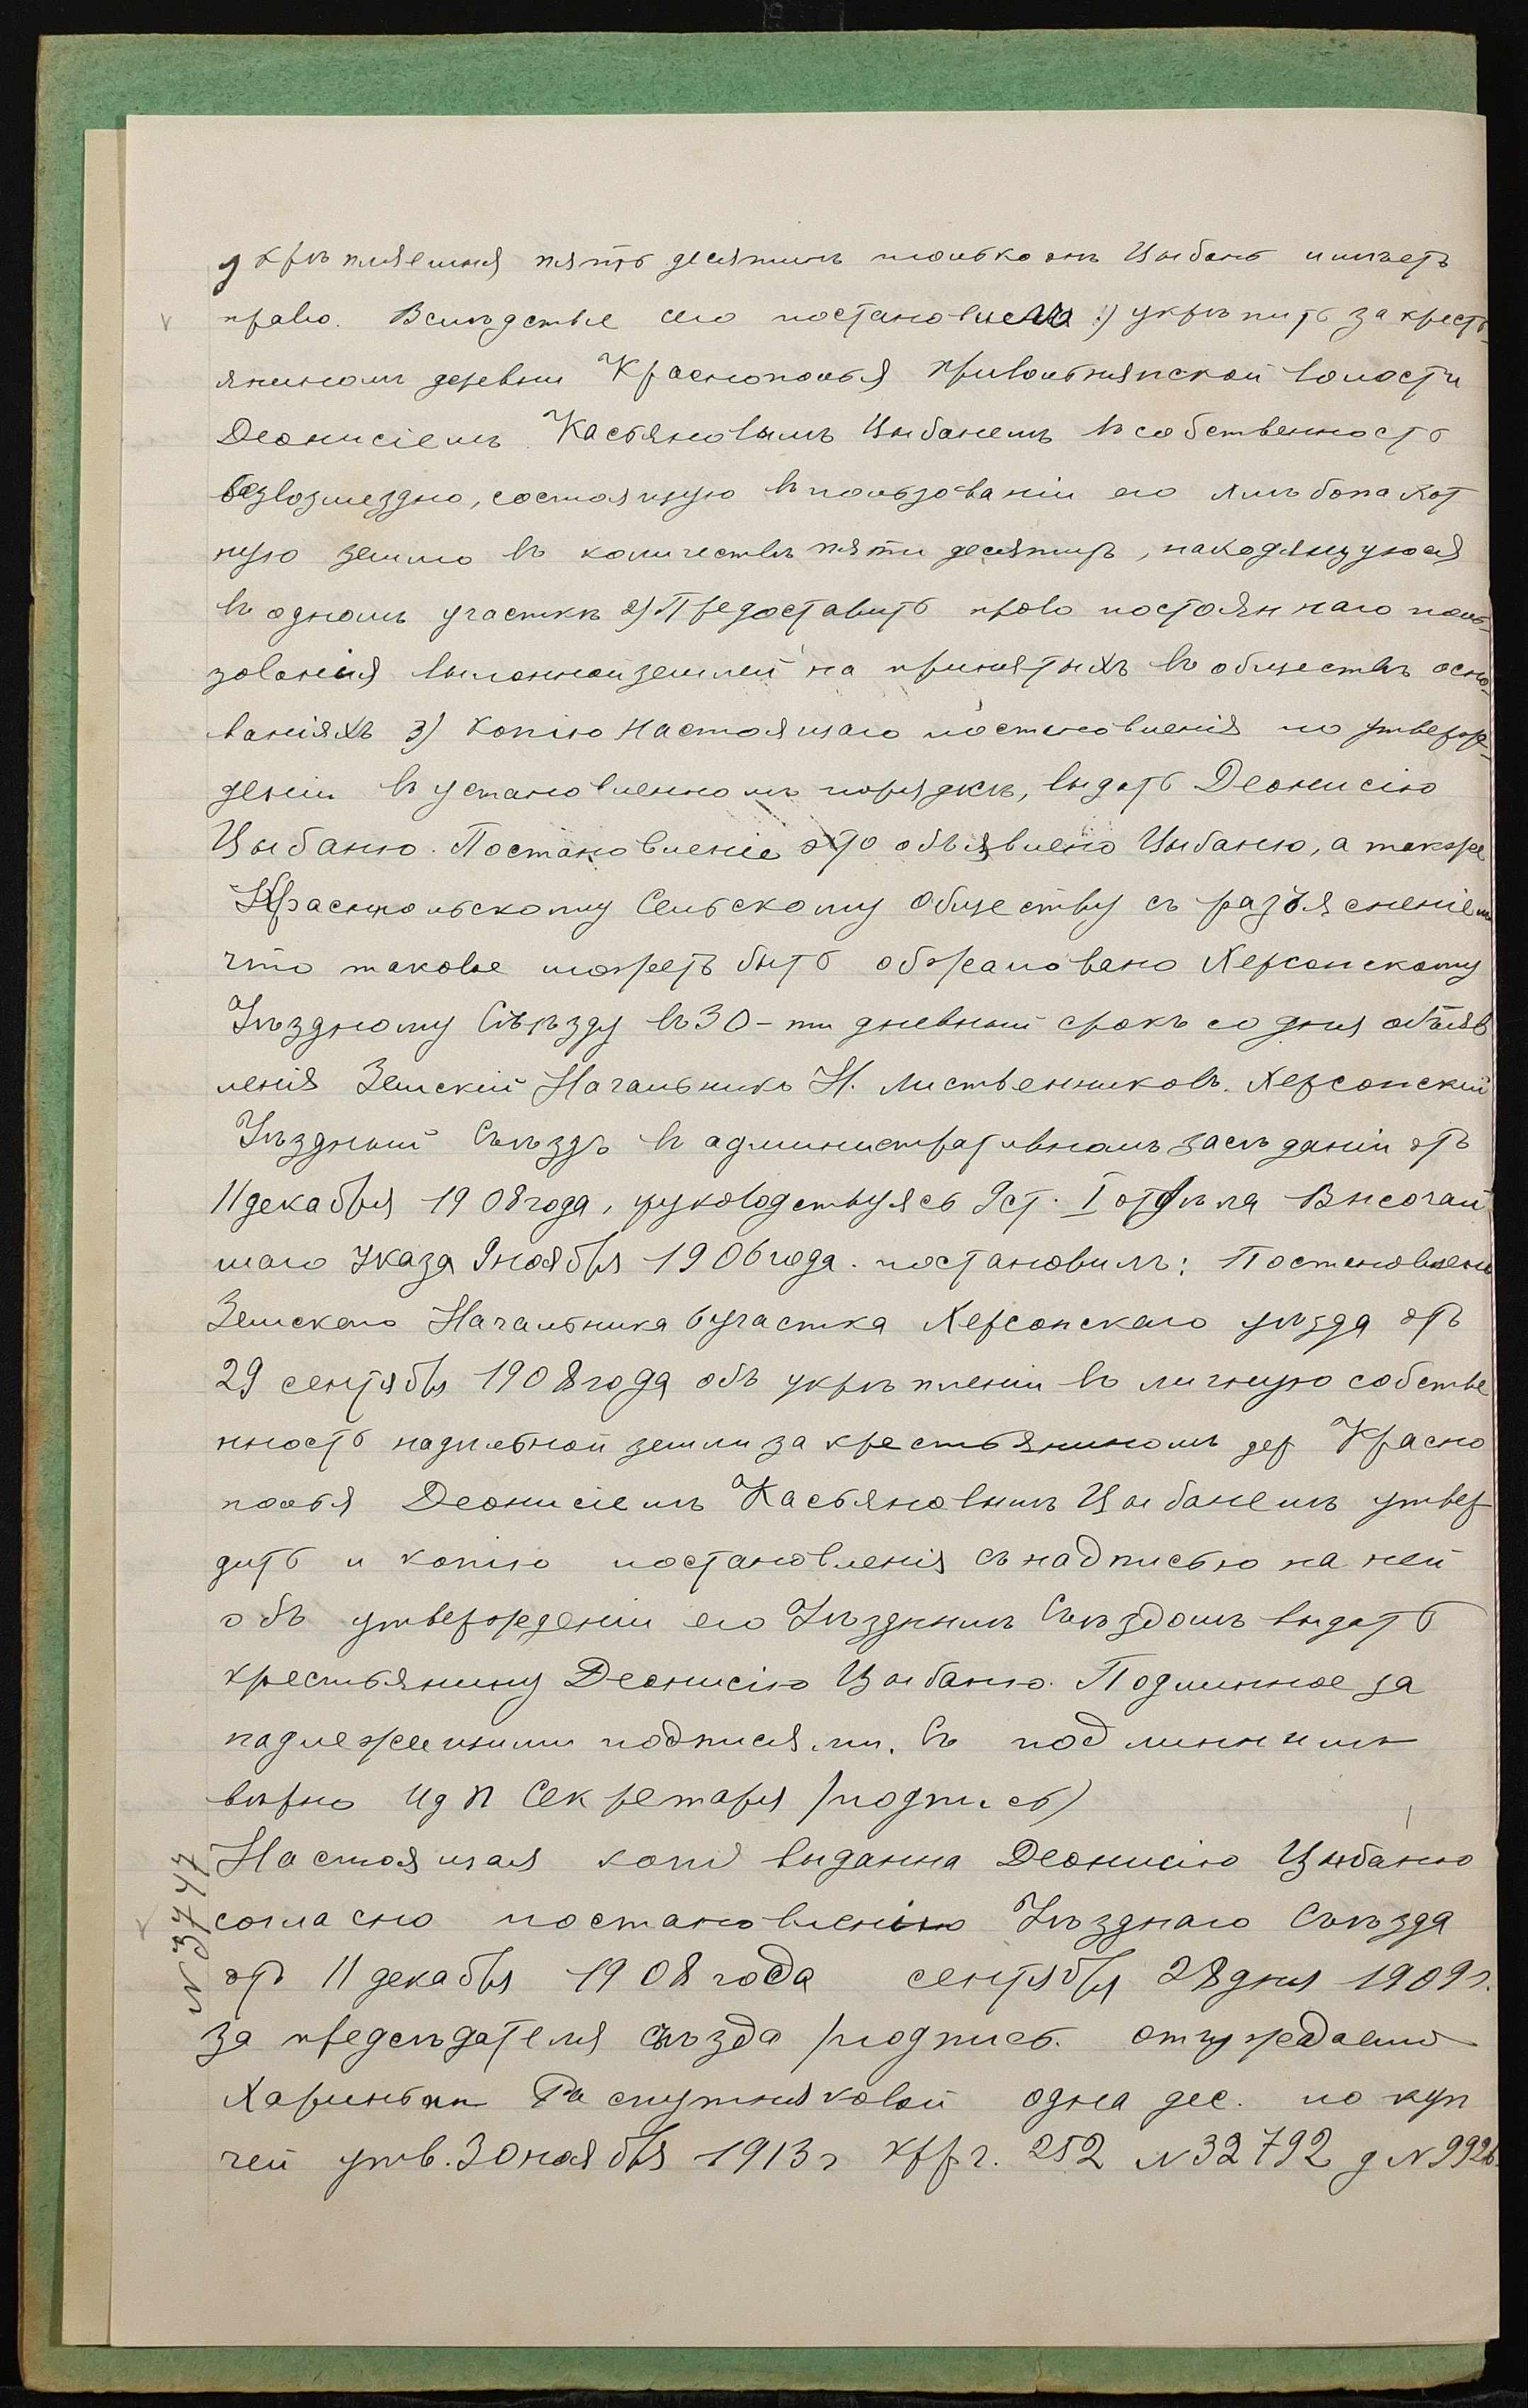 укрѣпляемыя пять десятинъ только онъ Цыбань имѣетъ
право. Вслѣдствіе сего постановилъ 1) укрѣпить за кресть-
яниномъ деревни Краснополья Привольнянской волости
Деонисіемъ Касьяновымъ Цыбанемъ въ собственность
безвозмездно, состоящую въ пользованіи его хлѣбопахот
ную землю въ количествѣ пяти десятинъ, находящуюся
въ одномъ участкѣ 2) Предоставить право постояннаго поль-
зованія выгонной землей на принятыхъ въ обществѣ осно-
ваніяхъ 3) Копію настоящаго постановленія по утверж-
деніи въ установленномъ порядкѣ, выдать Деонисію
Цыбаню. Постановленіе это объявлено Цыбаню, а также
Краснопольскому Сельскому Обществу съ разъясненіемъ
что таковое можетъ быть обжаловано Херсонскому
Уѣздному Съѣзду въ 30-ти дневный срокъ со дня объяв
ленія Земскій Начальникъ Н. Лиственниковъ. Херсонскій
Уѣздный Съѣздъ въ административномъ засѣданіи отъ
11 декабря 1908 года, руководствуясь 9 ст. I отдѣла Высочай
шаго Указа 9 ноября 1906 года. постановилъ: Постановлені
Земскаго Начальника 6 участка Херсонскаго уѣзда отъ
29 сентября 1908 года объ укрѣпленіи въ личную собстве
нность надѣльной земли за крестьяниномъ дер Красно
полья Деонисіемъ Касьяновымъ Цыбанемъ утвер
дить и копію постановленія съ надписью на ней
объ утвержденіи его Уѣзднымъ Съѣздомъ выдать
крестьянину Деонисію Цыбаню. Подлинное за
надлежащими подписями. Съ подлиннымъ
вѣрно И д п Секретаря /подпись/
Настоящая копія выданна Деонисію Цыбаню
согласно постановленію Уѣзднаго Съѣзда
№ 3747
отъ 11 декабря 1908 года сентября 28 дня 1909 г.
за предсѣдателя съѣзда /подпись. отчуждаемо
Распутняковой одна дес. по куп
чей утв. 30 ноября 1913 г кр р. 252 № 32792 д № 992